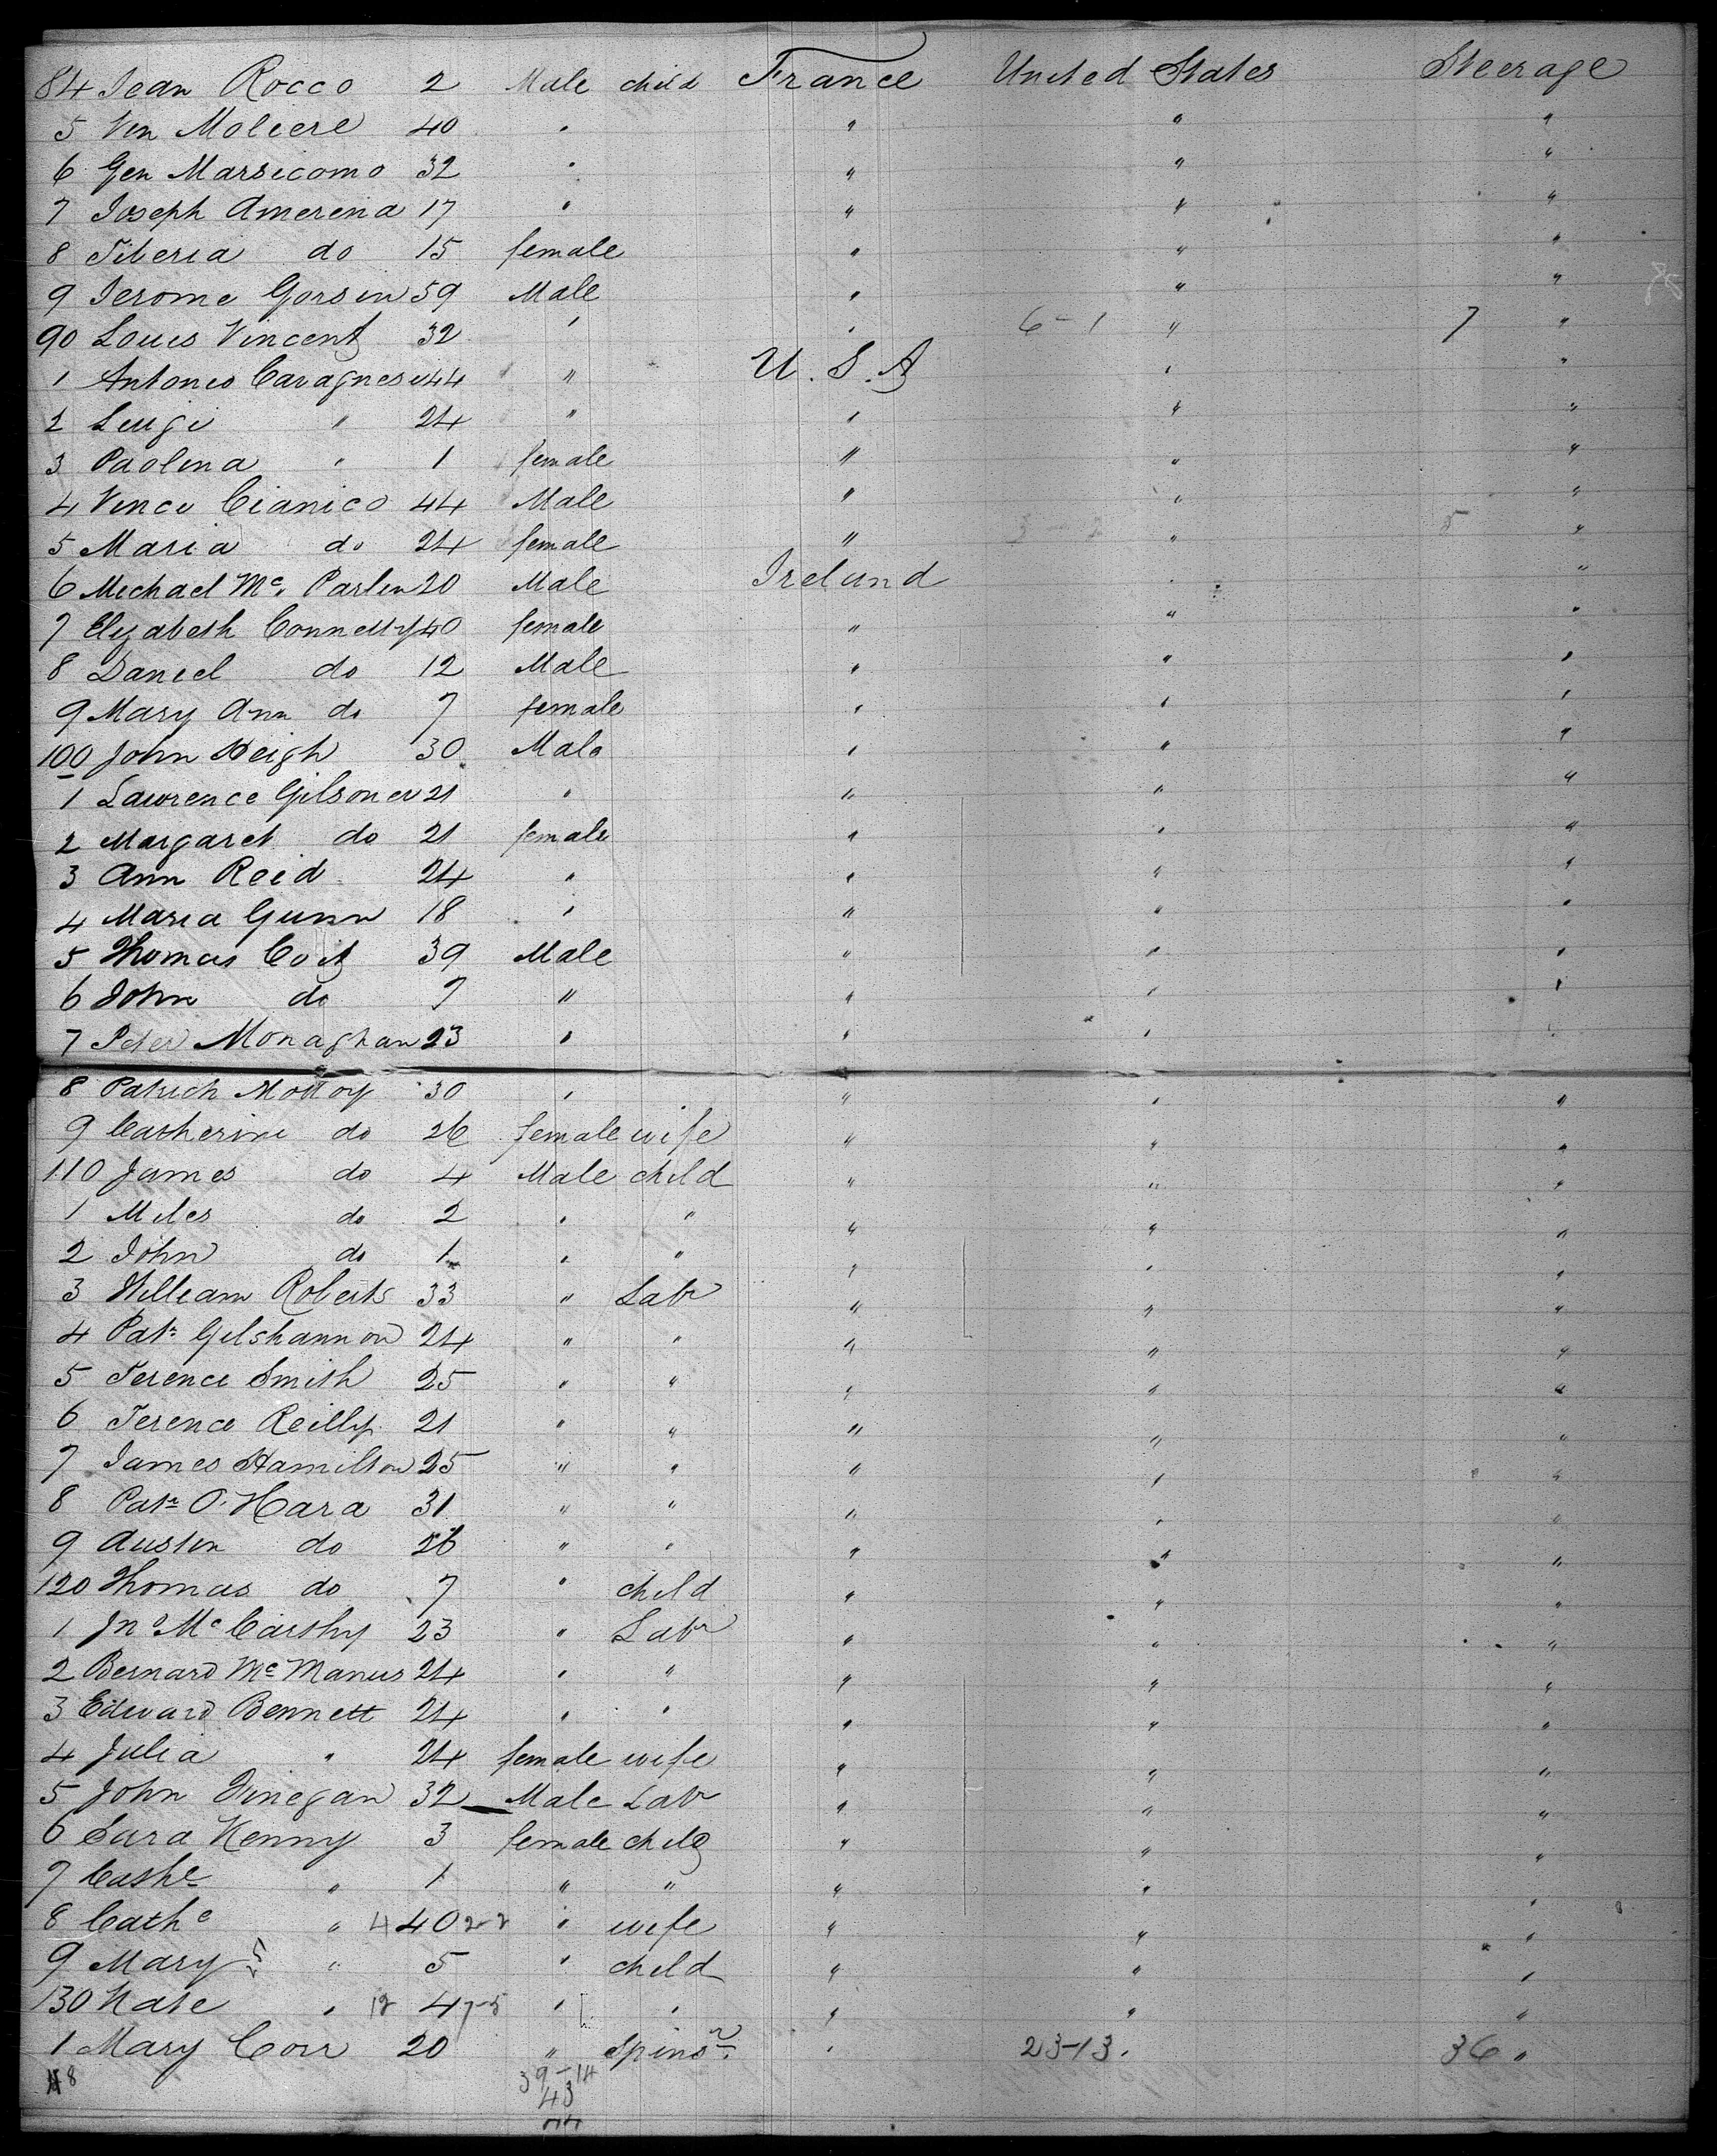 84 Jean Rocco 2 Male child France United States Steerage
5 Ven Moliere 40 " " " "
6 Gen Marsicomo 32 " " " "
7 Joseph Amerena 17 " " " "
8 Tiberia do 15 female " " "
9 Jerome Gorsin 59 Male " " "
90 Louis Vincent 32 " " 6-1 " 7 "
1 Antonio Caragnesi 44 " U.S.A " "
2 Luigi " 24 " " " "
3 Paolina " 1 female " " "
4 Vince Cianico 44 Male " " "
5 Maria do 24 female " " 5 "
6 Michael Mc. Parlin 20 Male Ireland " "
7 Elizabeth Connelly 40 female " " "
8 Daniel do 12 Male " " "
9 Mary Ann do 7 female " " "
100 John Keigh 30 Male " " "
1 Lawrence Gilsonen 21 " " " "
2 Margaret do 21 female " " "
3 Ann Reid 24 " " " "
4 Maria Gunn 18 " " " "
5 Thomas Coit 39 Male " " "
6 John do 7 " " " "
7 Peter Monaghan 23 " " " "
8 Patrick Molloy 30 " " " "
9 Catherine do 26 female wife " " "
110 James do 4 Male child " " "
1 Miles do 2 " " " " "
2 John do 1 " " " " "
3 William Roberts 33 " Labr " " "
4 Patk Gilshannon 24 " " " " "
5 Terence Smith 25 " " " " "
6 Terence Reilly 21 " " " " "
7 James Hamilton 25 " " " " "
8 Patk O'Hara 31 " " " " "
9 Austin do 26 " " " " "
120 Thomas do 7 " child " " "
1 Jno McCarthy 23 " Labr " " "
2 Bernard McManus 24 " " " " "
3 Edward Bennett 24 " " " " "
4 Julia " 24 female wife " " "
5 John Finegan 32 Male Labr " " "
6 Sara Kenny 3 female child " " "
7 Cathe " 1 " " " " "
8 Cathe " 4 40 2-2 " wife " " "
9 Mary " 5 " child " " "
130 Kate " 12 4 7-5 " " " " "
1 Mary Corr 20 " Spinsr " 23-13 " 36 "
8 39-14
43